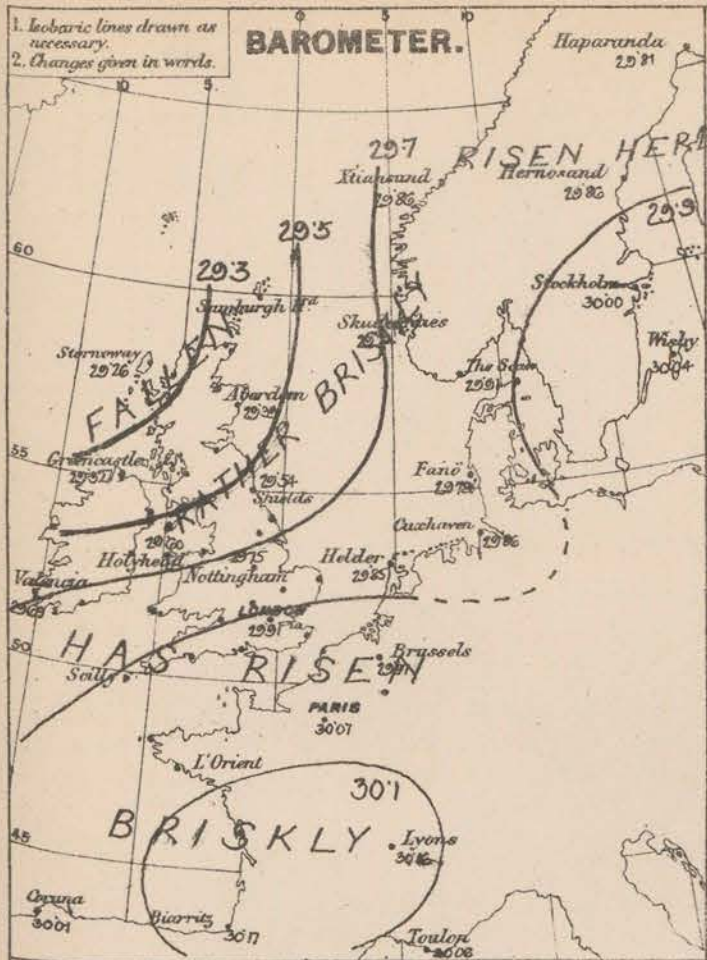 1. Isobaric lines drawn as
necessary.
2. Changes given in words.
BAROMETER.
0
5
10
10
5
Haparanda
29·81
29·7
RISEN HERE
Xtiansund
29·86
Hernosand
29·86
29·9
29·5
60
29·3
Sumburgh Hd
Stockholm
30·00
Skudesnaes
Wisby
30·04
Stornoway
29·26
FALLEN
The Scaw
29·91
Aberdeen
29·39
RATHER BRISKLY
55
Greencastle
Fanö
29·79
29·54
Shields
Cuxhaven
29·86
29·60
Holyhead
29·75
Nottingham
Helder
29·85
Valencia
29·69
LONDON
29·91
50
HAS RISEN
Scilly
Brussels
PARIS
30·07
L'Orient
30·1
BRISKLY
45
Lyons
30·16
Coruna
30·01
Biarritz
30·17
Toulon